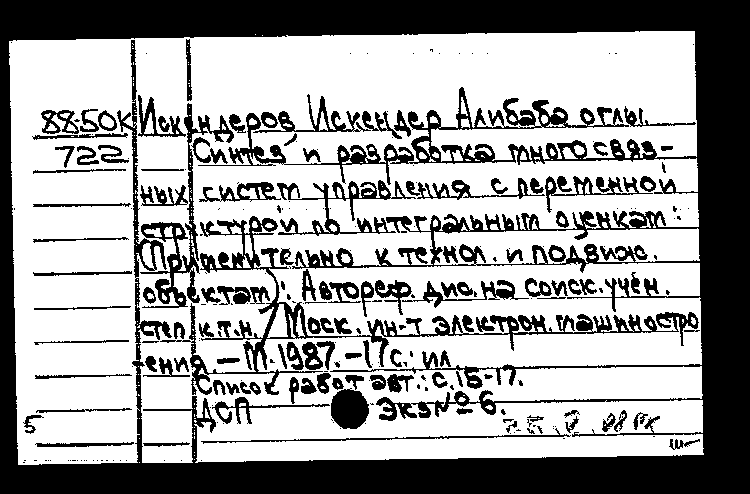 88-50К Искендеров Искендер Алибаба оглы.
722 Синтез и разработка многосвяз-
ных систем управления с переменной
структурой по интегральным оценкам:
(Применительно к технол. и подвиж.
объектам): Автореф. дис. на соиск. учен.
степ. к.т.н. / Моск. ин-т электрон. машиностро
ения. - М. 1987. - 17 с.: ил
Список работ авт.: с. 15-17.
ДСП Экз № 6.
5